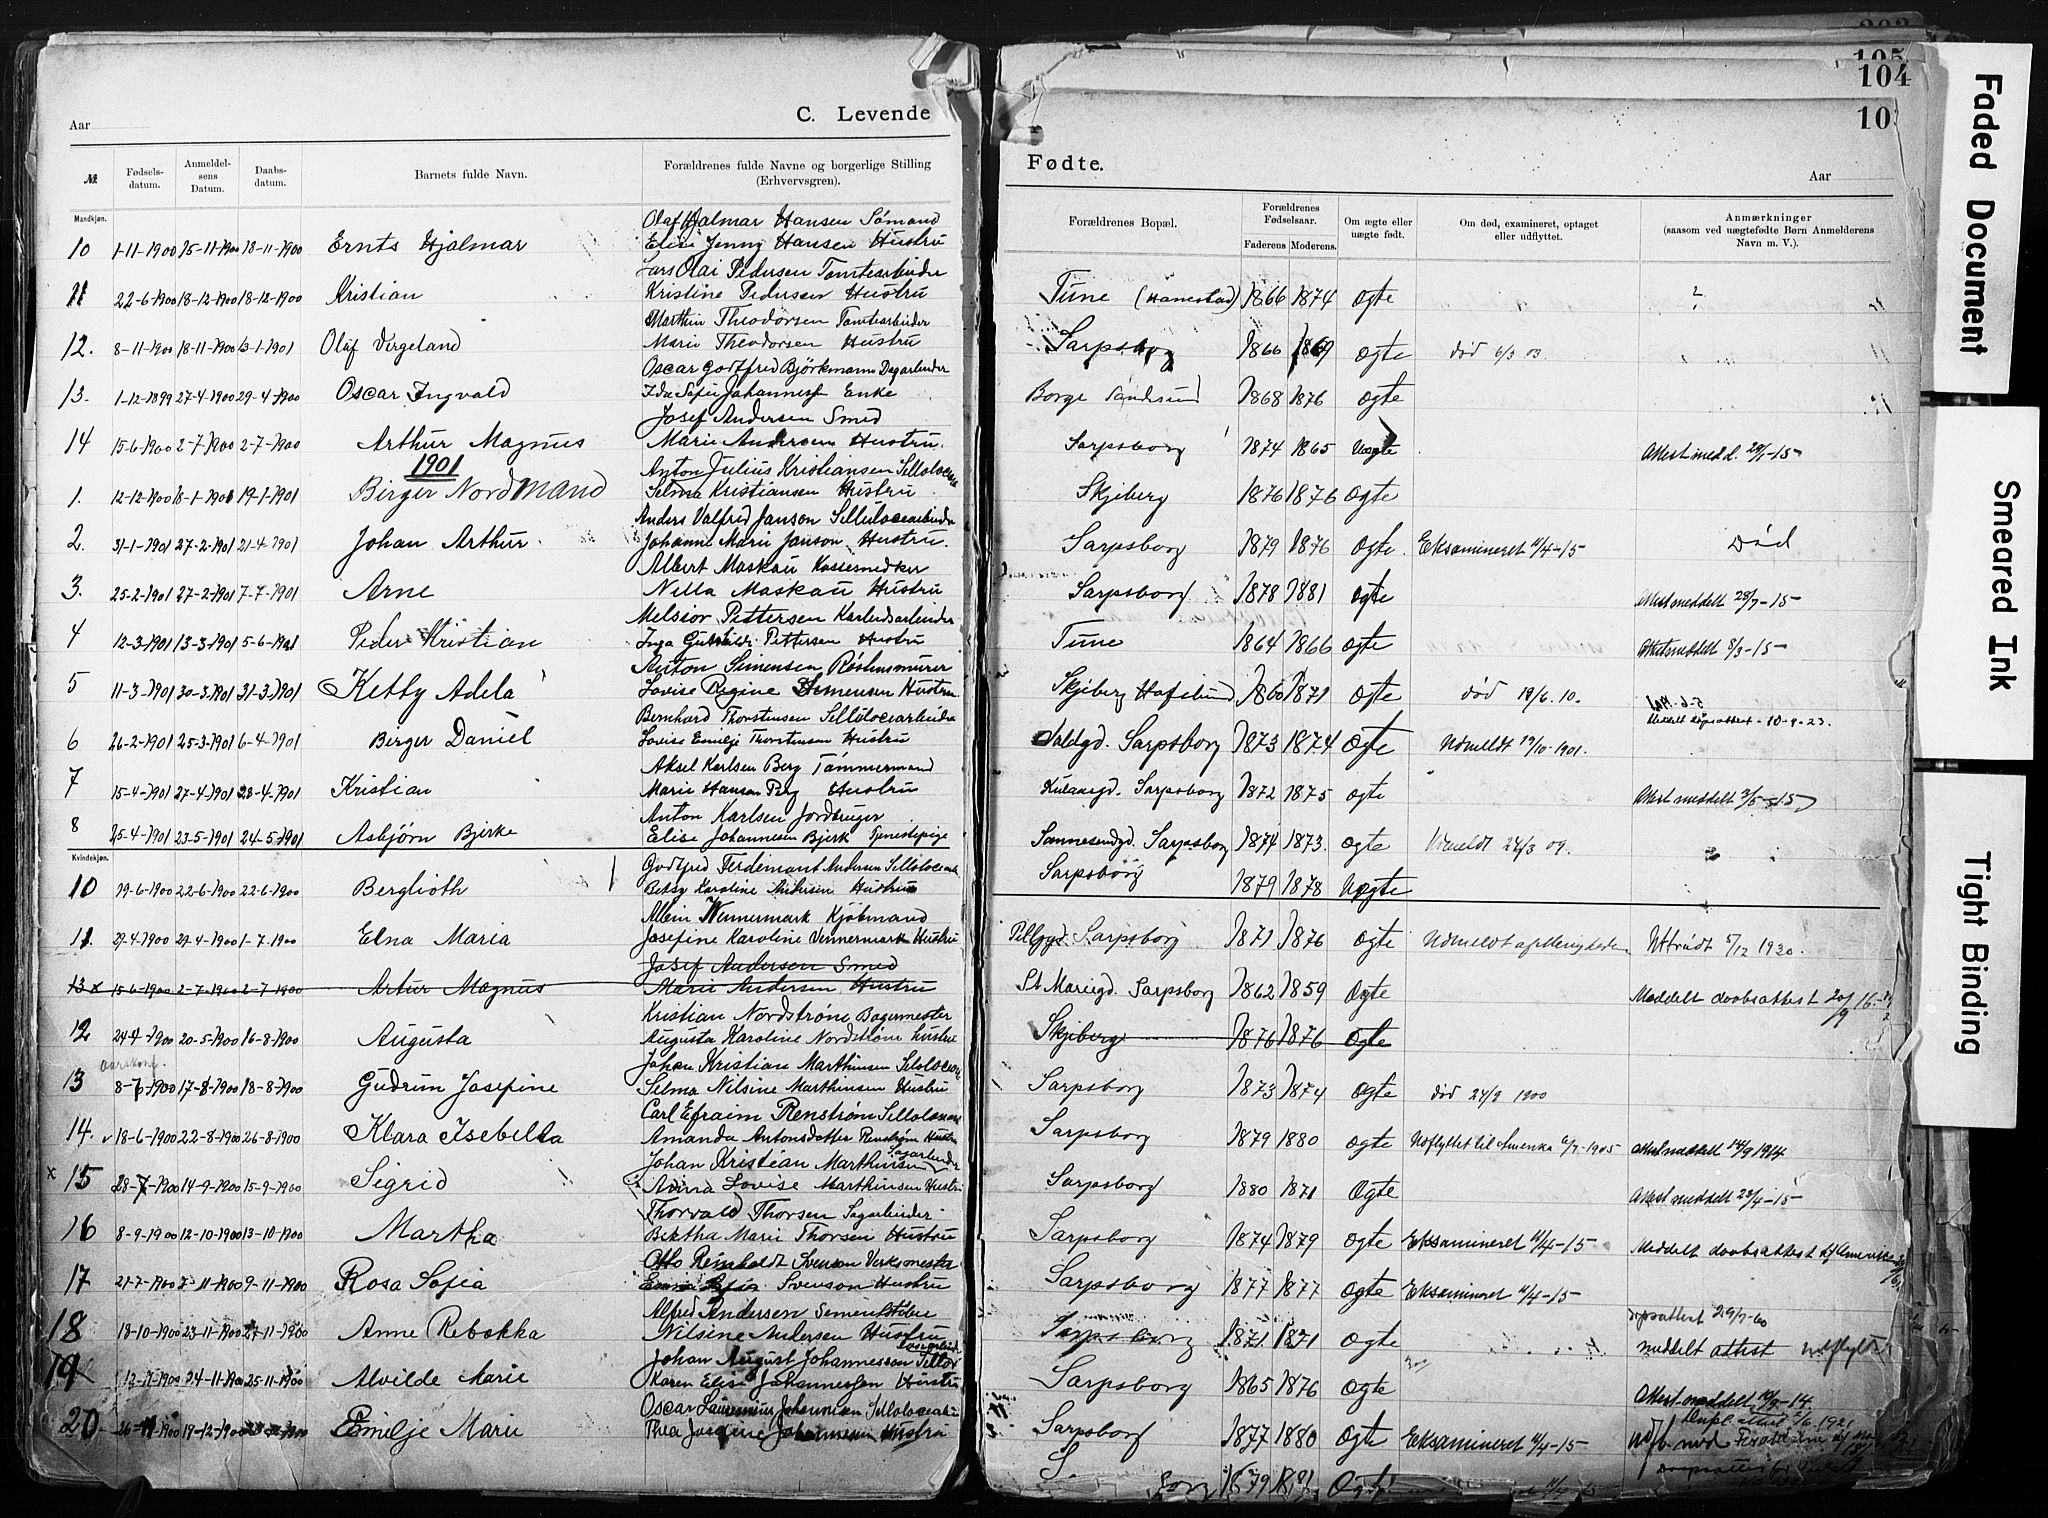 Aar
C. Levende
№
Fødsels-datum.
Anmeldel-sens Datum.
Daabs-datum.
Barnets fulde Navn.
Forældrenes fulde Navne og borgerlige Stilling (Erhvervsgren).
Mandkjøn.
Olaf Hjalmar Hansen Sømand
10 1-11-1900 15-11-1900 18-11-1900 Ernts Hjalmar Elise Jenny Hansen Hustru
Lars Olai Pedersen Tomtearbeider
11 22-6-1900 18-12-1900 18-12-1900 Kristian Kristine Pedersen Hustru
Marthin Theodorsen Tomtearbeider
12. 8-11-1900 18-11-1900 13-1-1901 Olaf Vergeland Marie Theodorsen Hustru
Oscar Godtfred Björkmann Dagarbeider
13. 1-12-1899 27-4-1900 29-4-1900 Oscar Ingvald Ida Sofie Enke
Josef Andersen Smed
14 15-6-1900 2-7-1900 2-7-1900 Arthur Magnus Marie Andersen Hustru.
1901
Anton Julius Kristiansen
1. 12-12-1900 8-1-1901 19-1-1901 Birger Nordmand Selma Kristiansen Hustru
Anders Valfred Janson Sellulocearbeider
2. 31-1-1901 27-2-1901 21-4-1901 Johan Arthur Johanne Marie Janson Hustru.
Albert Maskau
3. 25-2-1901 27-2-1901 7-7-1901 Arne Nilla Maskau Hustru
Melsior Pettersen
4 12-3-1901 13-3-1901 5-6-1901 Peder Kristian Inga Pettersen Hustru
Anton Simensen Röshusmurer
5 11-3-1901 30-3-1901 31-3-1901 Ketty Adela Lovise Regine Simensen Hustru
Bernhard Thorstensen Sellulocearbeider
6 26-2-1901 25-3-1901 6-4-1901 Birger Daniel Lovise Emilje Thorstensen Hustru
Aksel Karlsen Berg Tömmermand
7 15-4-1901 27-4-1901 28-4-1901 Kristian Marie Hanson Berg Hustru
Anton Karlsen Jordbruger
8 25-4-1901 23-5-1901 24-5-1901 Asbjørn Bjerke Elise Johannesen Bjerk Tjenestepige
Kvindekjøn.
Godtfred Ferdemant Andersen
10 19-6-1900 22-6-1900 22-6-1900 Berglioth Betsy Karoline Andersen Hustru
Albin Wennermark Kjöbmand
11. 29-4-1900 29-4-1900 1-7-1900 Elna Maria Josefine Karoline Vennermark Hustru
Josef Andersen Smed
13 x 15-6-1900 2-7-1900 2-7-1900 Artur Magnus Marie Andersen Hustru
Kristian Nordstrøm Bagermester
12 24-4-1900 20-5-1900 16-8-1900 Augusta Augusta Karoline Nordstrøm hustru
Johan Kristian Marthinsen
13 8-6-1900 17-8-1900 18-8-1900 Gudrun Josefine Selma Nilsine Marthinsen Hustru
Carl Efraim Renstrøm
14. 18-6-1900 22-8-1900 26-8-1900 Klara Isebella Amanda Antonsdatter Renstrøm Hustru
Johan Kristian Marthinsen Sagarbeider
x 15 28-7-1900 14-9-1900 15-9-1900 Sigrid Anna Lovise Marthinsen Hustru
Thorvald Thorsen Sagarbeider
16 8-9-1900 12-10-1900 13-10-1900 Martha Birtha Marie Thorsen Hustru
Otto Reinholdt Svenson Verksmester
17 21-7-1900 7-11-1900 9-11-1900 Rosa Sofia Svenson Hustru
Alfred Andersen
18 18-10-1900 23-11-1900 27-11-1900 Anne Rebekka Nilsine Andersen Hustru
Johan August Johannesson
19 24-11-1900 25-11-1900 Alvilde Marie Karen Elise Johannessen Hustru
Oscar Johannesen
20 19-12-1900 Emilje Marie Thea Josefine Johannesen Hustru
105
104
10
Fødte.
Aar
Forældrenes Bopæl.
Forældrenes Fødselsaar.
Faderens Moderens.
Om ægte eller uægte født.
Om død, examineret, optaget eller udflyttet.
Anmærkninger (saasom ved uægtefødte Børn Anmelderens Navn m. V.).
Tune (Hanestad) 1866 1874 Ægte ?
Sarpsborg 1866 1869 Ægte död 6/3 03
Borge Sandesund 1868 1876 Ægte
Sarpsborg 1874 1865 Uægte Attest medd. 29/1-15
Skjeberg 1876 1876 Ægte
Sarpsborg 1879 1876 Ægte. Eksamineret 11/4-15 Död
Sarpsborg 1878 1881 Ægte Attest meddelt 28/7-15
Tune 1864 1866 Ægte meddelt 8/3-15
Skjeberg Hafslund 1860 1871 Ægte död 19/6. 10.
Meddelt dåpsattest - 10-9-23.
Sarpsborg 1873 1874 Ægte Udmeldt 19/10-1901.
Sarpsborg 1872 1875 Ægte Attest meddelt 3/5-15
Sannesundgd. Sarpsborg 1874 1873. Ægte Udmeldt 24/3 09.
Sarpsborg 1879 1878 Uægte
Sarpsborg 1871 1876 Ægte Udmeldt af Menigheden Uttrådt 5/12 1930.
St Mariegd. Sarpsborg 1862 1859 Ægte Meddelt daabsattest 20/9 16
Skjeberg 1876 1876 Ægte
Sarpsborg 1873 1874 Ægte död 24/9 1900
Sarpsborg 1879 1880 Ægte Udflyttet til Amerika 6/7-1905 Attest meddelt 14/9 1914
Sarpsborg 1880 1871 Ægte Attest meddelt 23/4-15
Sarpsborg 1874 1879 Ægte Eksamineret 11/4-15 Meddelt daabsattest
Sarpsborg 1877 1877 Ægte Eksamineret 11/4-15
dåpsattest 29/7-60
Sarpsborg 1871 1871 Ægte meddelt attest udflyttet
Sarpsborg 1865 1876 Ægte Attest meddelt
Sarpsborg 1877 1880 Ægte Eksamineret 11/4-15
1879 1881 Ægte
Faded Document
Smeared Ink
Tight Binding